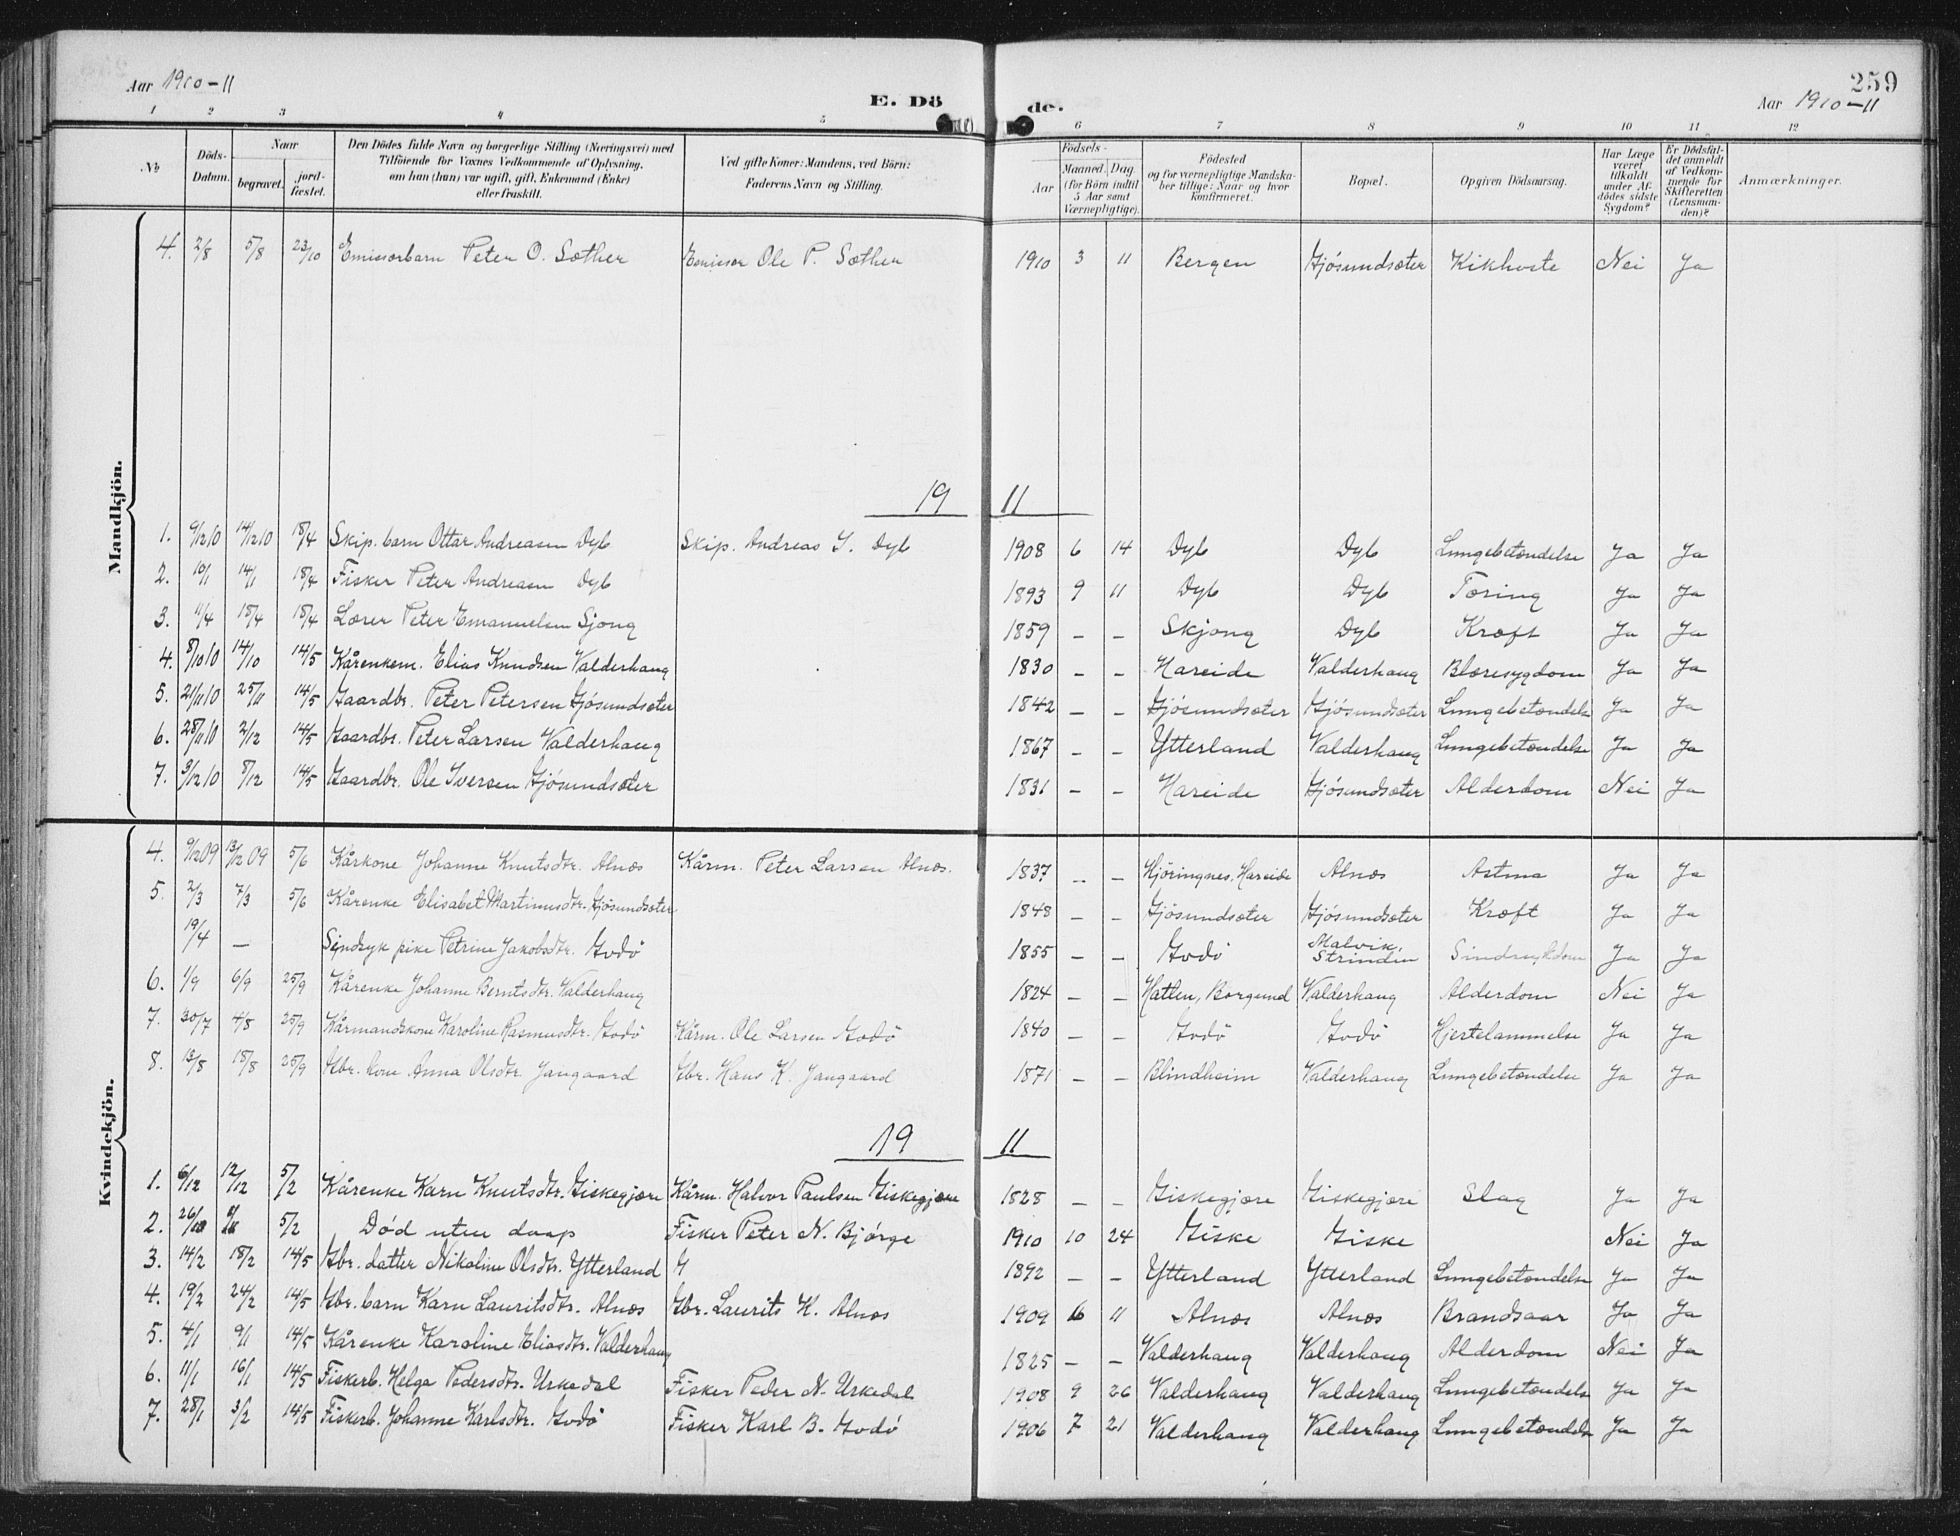 Aar 1910-11
E. Dö
de.
259
Aar 1910-11
1 2 3 4 5 6 7 8 9 10 11 12
No
Döds-Datum.
Naar
begravet.
jordfæstet.
Den Dödes fulde Navn og borgerlige Stilling (Næringsvei) med
Tilföiende for Voxnes Vedkommende af Oplysning,
om han (hun) var ugift, gift, Enkemand (Enke)
eller fraskilt.
Ved gifte Koner: Mandens, ved Börn:
Faderens Navn og Stilling.
Födsels-
Aar
Maaned. Dag
(for Börn indtil
5 Aar samt
Værnepligtige).
Födested
og for værnepligtige Mandskaber tillige: Naar og hvor
Konfirmeret.
Bopæl.
Opgiven Dödsaarsag.
Har Læge
været
tilkaldt
under Afdödes sidste
Sygdom?
Er Dödsfaldet anmeldt
af Vedkommende for
Skifteretten
(Lensmanden)?
Anmærkninger.
Mandkjön.
4. 2/8 5/8 23/10 Emissørbarn Peter O. Sæther Emissør Ole P. Sæther 1910 3 11 Bergen Gjøsundsæter Kikhoste Nei Ja
1911
1. 9/12 10 14/12 10 18/4 Skip. barn Ottar Andreasen Dyb Skip. Andreas I. Dyb 1908 6 14 Dyb Dyb Lungebetændelse Ja Ja
2. 10/1 14/1 18/4 Fisker Peter Andreasen Dyb 1893 9 11 Dyb Dyb Tæring Ja Ja
3. 11/4 18/4 18/4 Lærer Peter Emanuelsen Sjong 1859 - - Skjong Dyb Kræft Ja Ja
4. 8/10 10 14/10 14/5 Kårenkem. Elias Knudsen Valderhaug 1830 - - Hareide Valderhaug Blæresygdom Ja Ja
5. 21/11 10 25/11 14/5 Gaardbr. Peter Petersen Gjøsundsæter 1842 - - Gjøsundsæter Gjøsundsæter Lungebetændelse Ja Ja
6. 28/11 10 2/12 14/5 Gaardbr. Peter Larsen Valderhaug 1867 - - Ytterland Valderhaug Lungebetændelse Ja Ja
7. 3/12 10 8/12 14/5 Gaardbr. Ole Iversen Gjøsundsæter 1831 - - Hareide Gjøsundsæter Alderdom Nei Ja
Kvindekjön.
4. 9/12 09 13/12 09 5/6 Kårkone Johanne Knutsdtr. Alnæs Kårm. Peter Larsen Alnæs. 1837 - - Hjøringnes, Hareide Alnæs Astma Ja Ja
5. 2/3 7/3 5/6 Kårenke Elisabet Martinusdtr. Gjøsundsæter 1848 - - Gjøsundsæter Gjøsundsæter Kræft Ja Ja
19/4 - Sindsyk pike Petrine Jakobsdtr. Godø 1855 - - Godø Malvik, Strinden Sindssykdom Ja Ja
6. 1/9 6/9 25/9 Kårenke Johanne Berntsdtr. Valderhaug 1824 - - Hatlen, Borgund Valderhaug Alderdom Nei Ja
7. 30/7 4/8 25/9 Kårmandskone Karoline Rasmusdtr. Godø Kårm. Ole Larsen Godø 1840 - - Godø Godø Hjertelammelse Ja Ja
8. 13/8 18/8 25/9 Gbr. kone Anna Olsdtr. Jangaard Gbr. Hans K. Jangaard 1871 - - Blindheim Valderhaug Lungebetændelse Ja Ja
1911
1. 6/12 12/12 5/2 Kårenke Karn Knutsdtr. Giskegjære Kårm. Halvor Paulsen Giskegjære 1828 - - Giskegjære Giskegjære Slag Ja Ja
2. 26/10 5/2 Død uten daap Fisker Peter N. Bjørge 1910 10 24 Giske Giske Nei Ja
3. 14/2 18/2 14/5 Gbr. datter Nikoline Olsdtr. Ytterland 1892 - - Ytterland Ytterland Lungebetændelse Ja Ja
4. 19/2 24/2 14/5 Gbr. barn Karn Lauritsdtr. Alnæs Gbr. Laurits K. Alnæs 1909 6 11 Alnæs Alnæs Brandsaar Ja Ja
5. 4/1 9/1 14/5 Kårenke Karoline Eliasdtr. Valderhaug 1825 - - Valderhaug Valderhaug Alderdom Nei Ja
6. 11/1 16/1 14/5 Fiskerb. Helga Pedersdtr. Urkedal Fisker Peder N. Urkedal 1908 9 26 Valderhaug Valderhaug Lungebetændelse Ja Ja
7. 28/1 3/2 14/5 Fiskerb. Johanne Karlsdtr. Godø Fisker Karl B. Godø 1906 7 21 Valderhaug Valderhaug Lungebetændelse Ja Ja